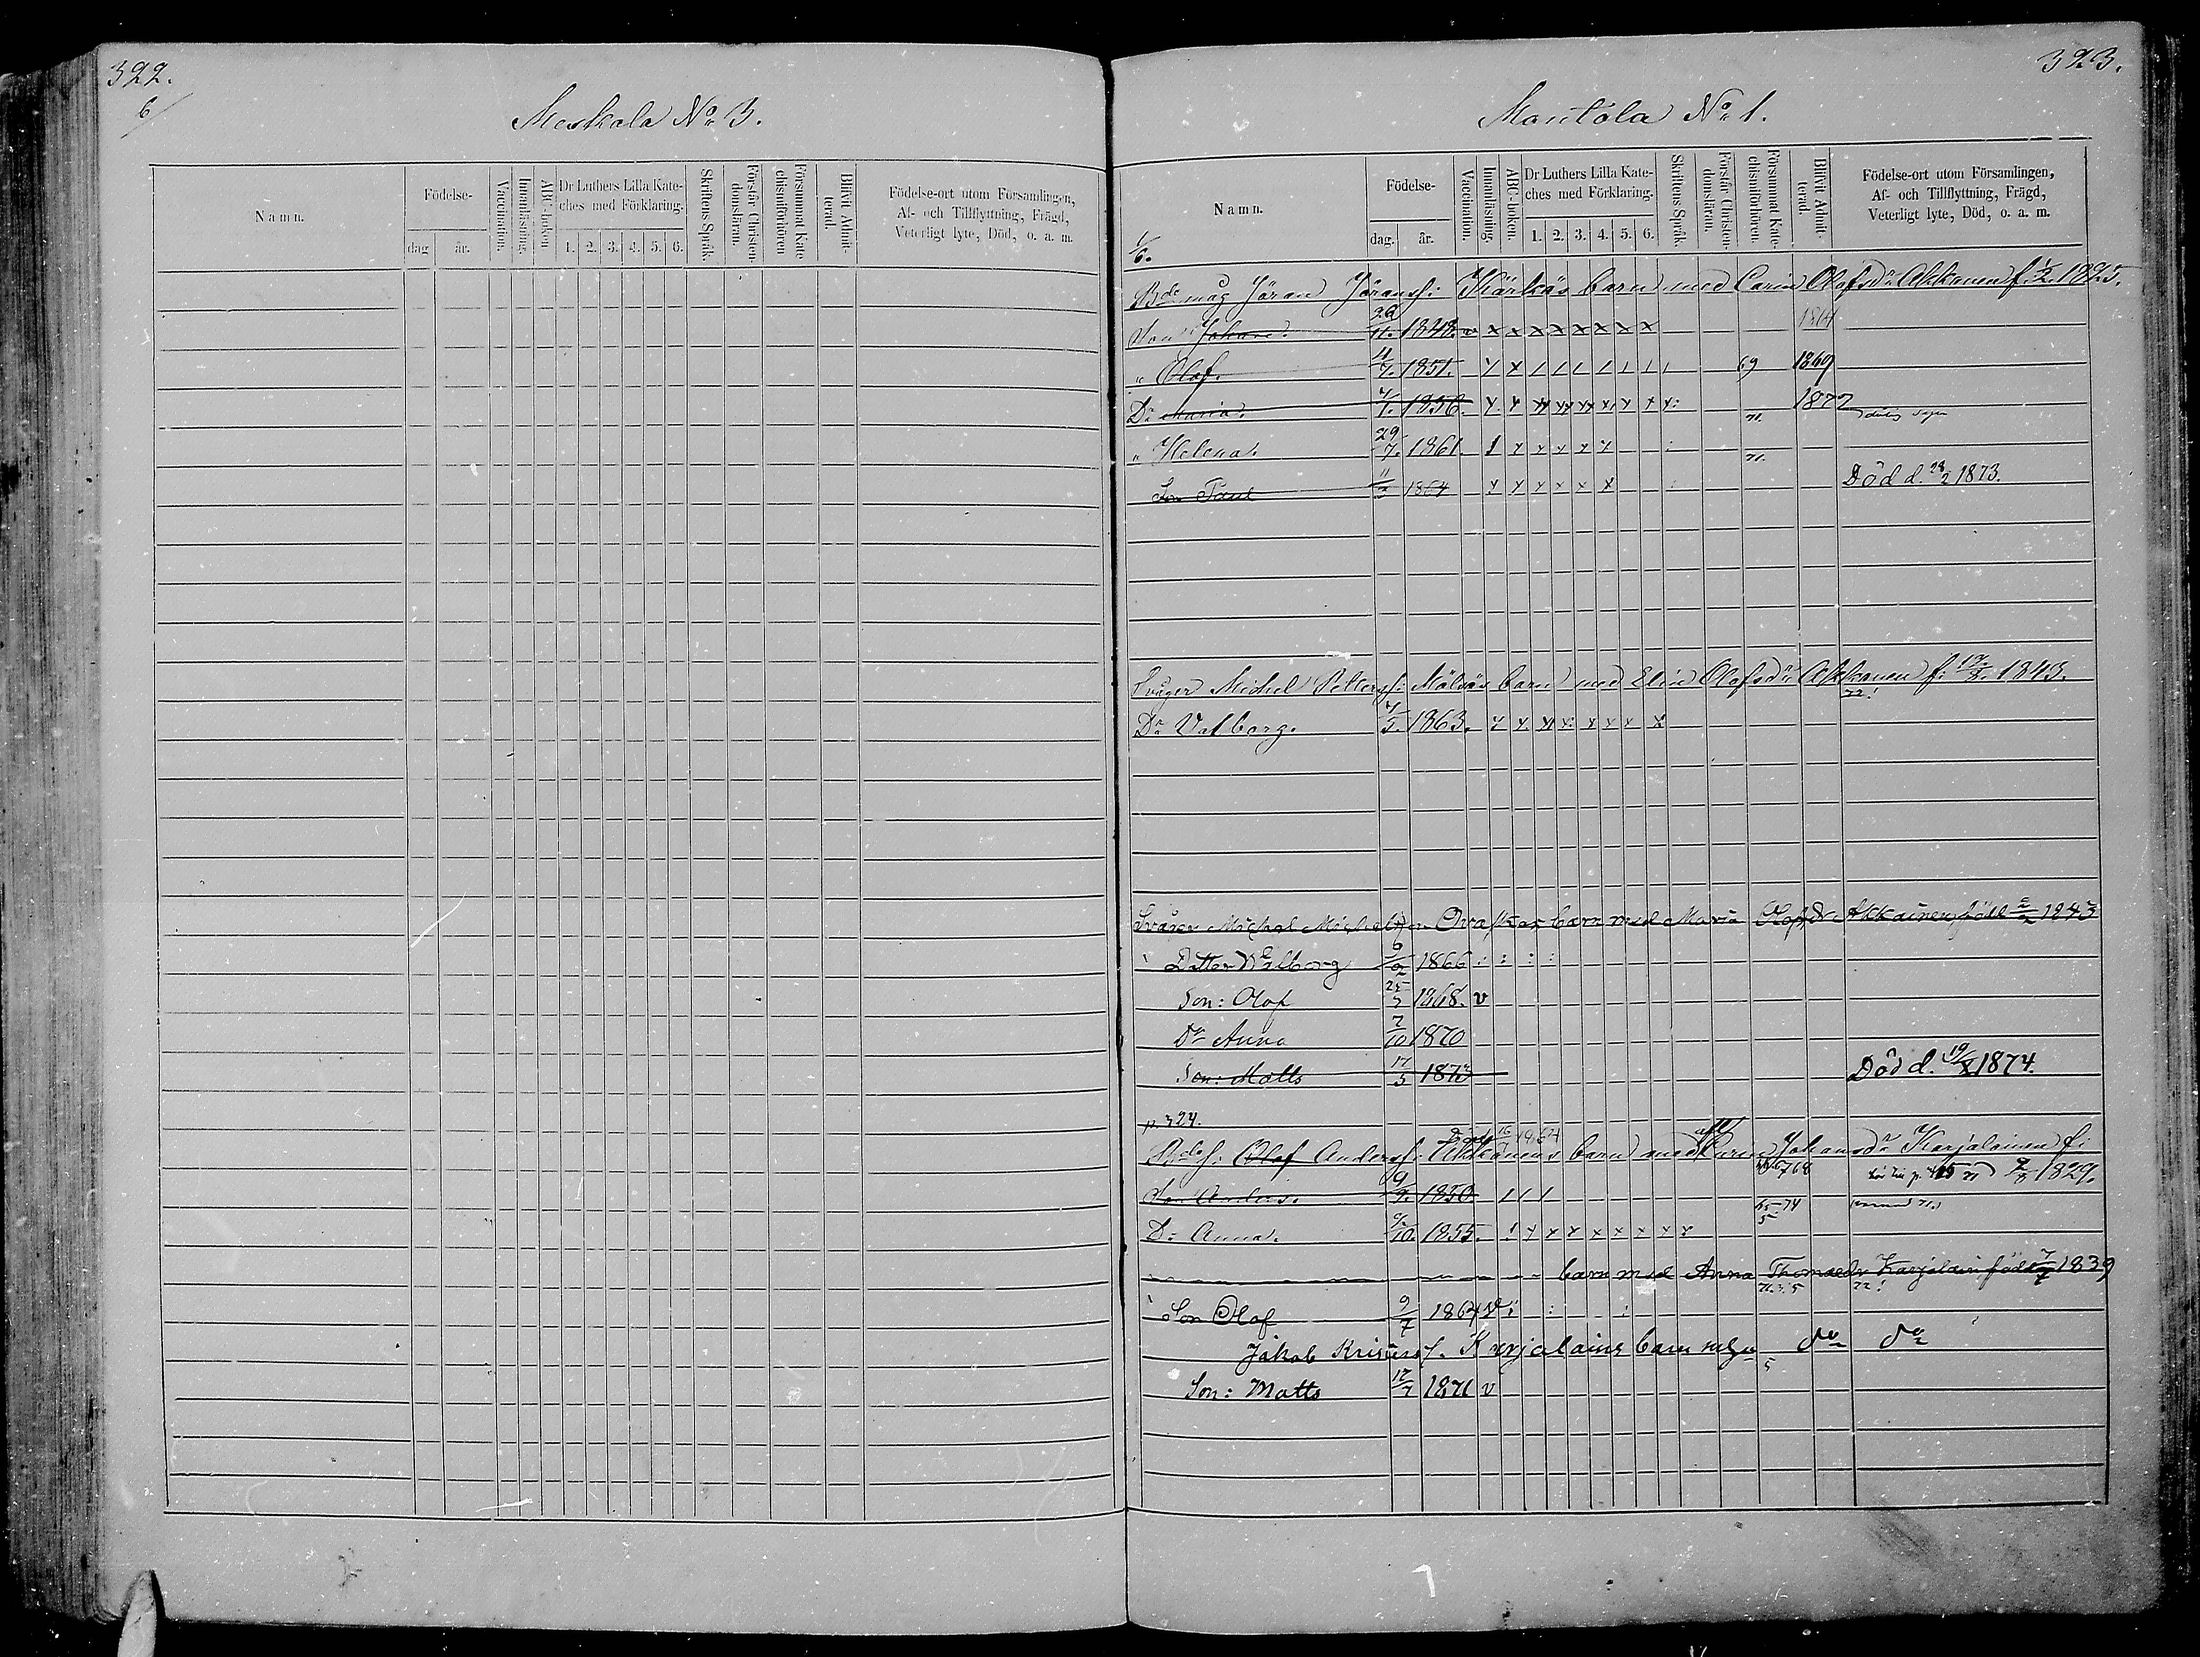 322.
6/
Meskala No 3.
Namn.
Födelse-
dag
år.
Vaccination.
Innanläsning.
ABC-boken
Dr Luthers Lilla Kate-
ches med Förklaring.
1. 2. 3. 4. 5. 6.
Skriftens Språk.
Förstår Christen-
domsläran.
Försummat Kate
chismiförhören
Blifvit Admit-
terad.
Födelse-ort utom Församlingen,
Af- och Tillflyttning, Frägd,
Veterligt lyte, Död, o. a. m.
323.
Mantola No 1.
Namn.
Födelse-
dag.
år.
Vaccination.
Innanläsning.
ABC-boken.
Dr Luthers Lilla Kate-
ches med Förklaring.
1. 2. 3. 4. 5. 6.
Skriftens Språk
Förstår Christen-
domsläran.
Försummat Kate-
chismiförhören.
Blifvit Admit-
terad.
Födelse-ort utom Församlingen,
Af- och Tillflyttning, Frägd,
Veterligt lyte, Död, o. a. m.
1/6.
Bde mag Jöran Jöransf: Kärkäs barn med Carin Olofsdr Akkanen f. 1825.
Son Johan. 1848. x x x x x x x x 1864
" Olof. 4/7. 1851. 69 1869
Dr Maria. 1856. 1872
" Helena. 29/7. 1861. 71.
Son Paul 1864 71. Död d. 1873.
Svåger Michel Pettersf: Mälkäs barn med Elin Olofsdr Akkanen f: 1843.
Dr Valborg. 4/5. 1863. 72!
Svåger Michel Michelss Oraskas barn med Maria Olofsdr Akkainen född 1843
Dotter Walborg 1866
Son: Olof 25/3 1868. v
Dr Anna 7/10 1870
Son: Matts 17/3 1873 Död d. 1874.
p. 324.
Olof Andersf: Akkanens barn med Karin Johansdr Karjalainen f:
Son Anders. 9/9. 1850 1829.
Dr Anna. 1855.
barn med Anna Thomasdr Karjalain född 7/7 1839
Son Olof 9/7 1864 72!
Jakob Krisiusf. Karjalains barn med do do
Son: Matts 12/7 1871 v